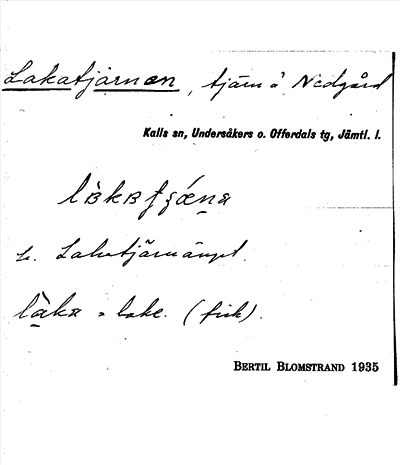 Lakatjärnen, tjärn å Nedgård
Kalls sn, Undersåkers o. Offerdals tg, Jämtl. l.
L. Lakatjärnänget.
làka = lake. (fisk).
BERTIL BLOMSTRAND 1935